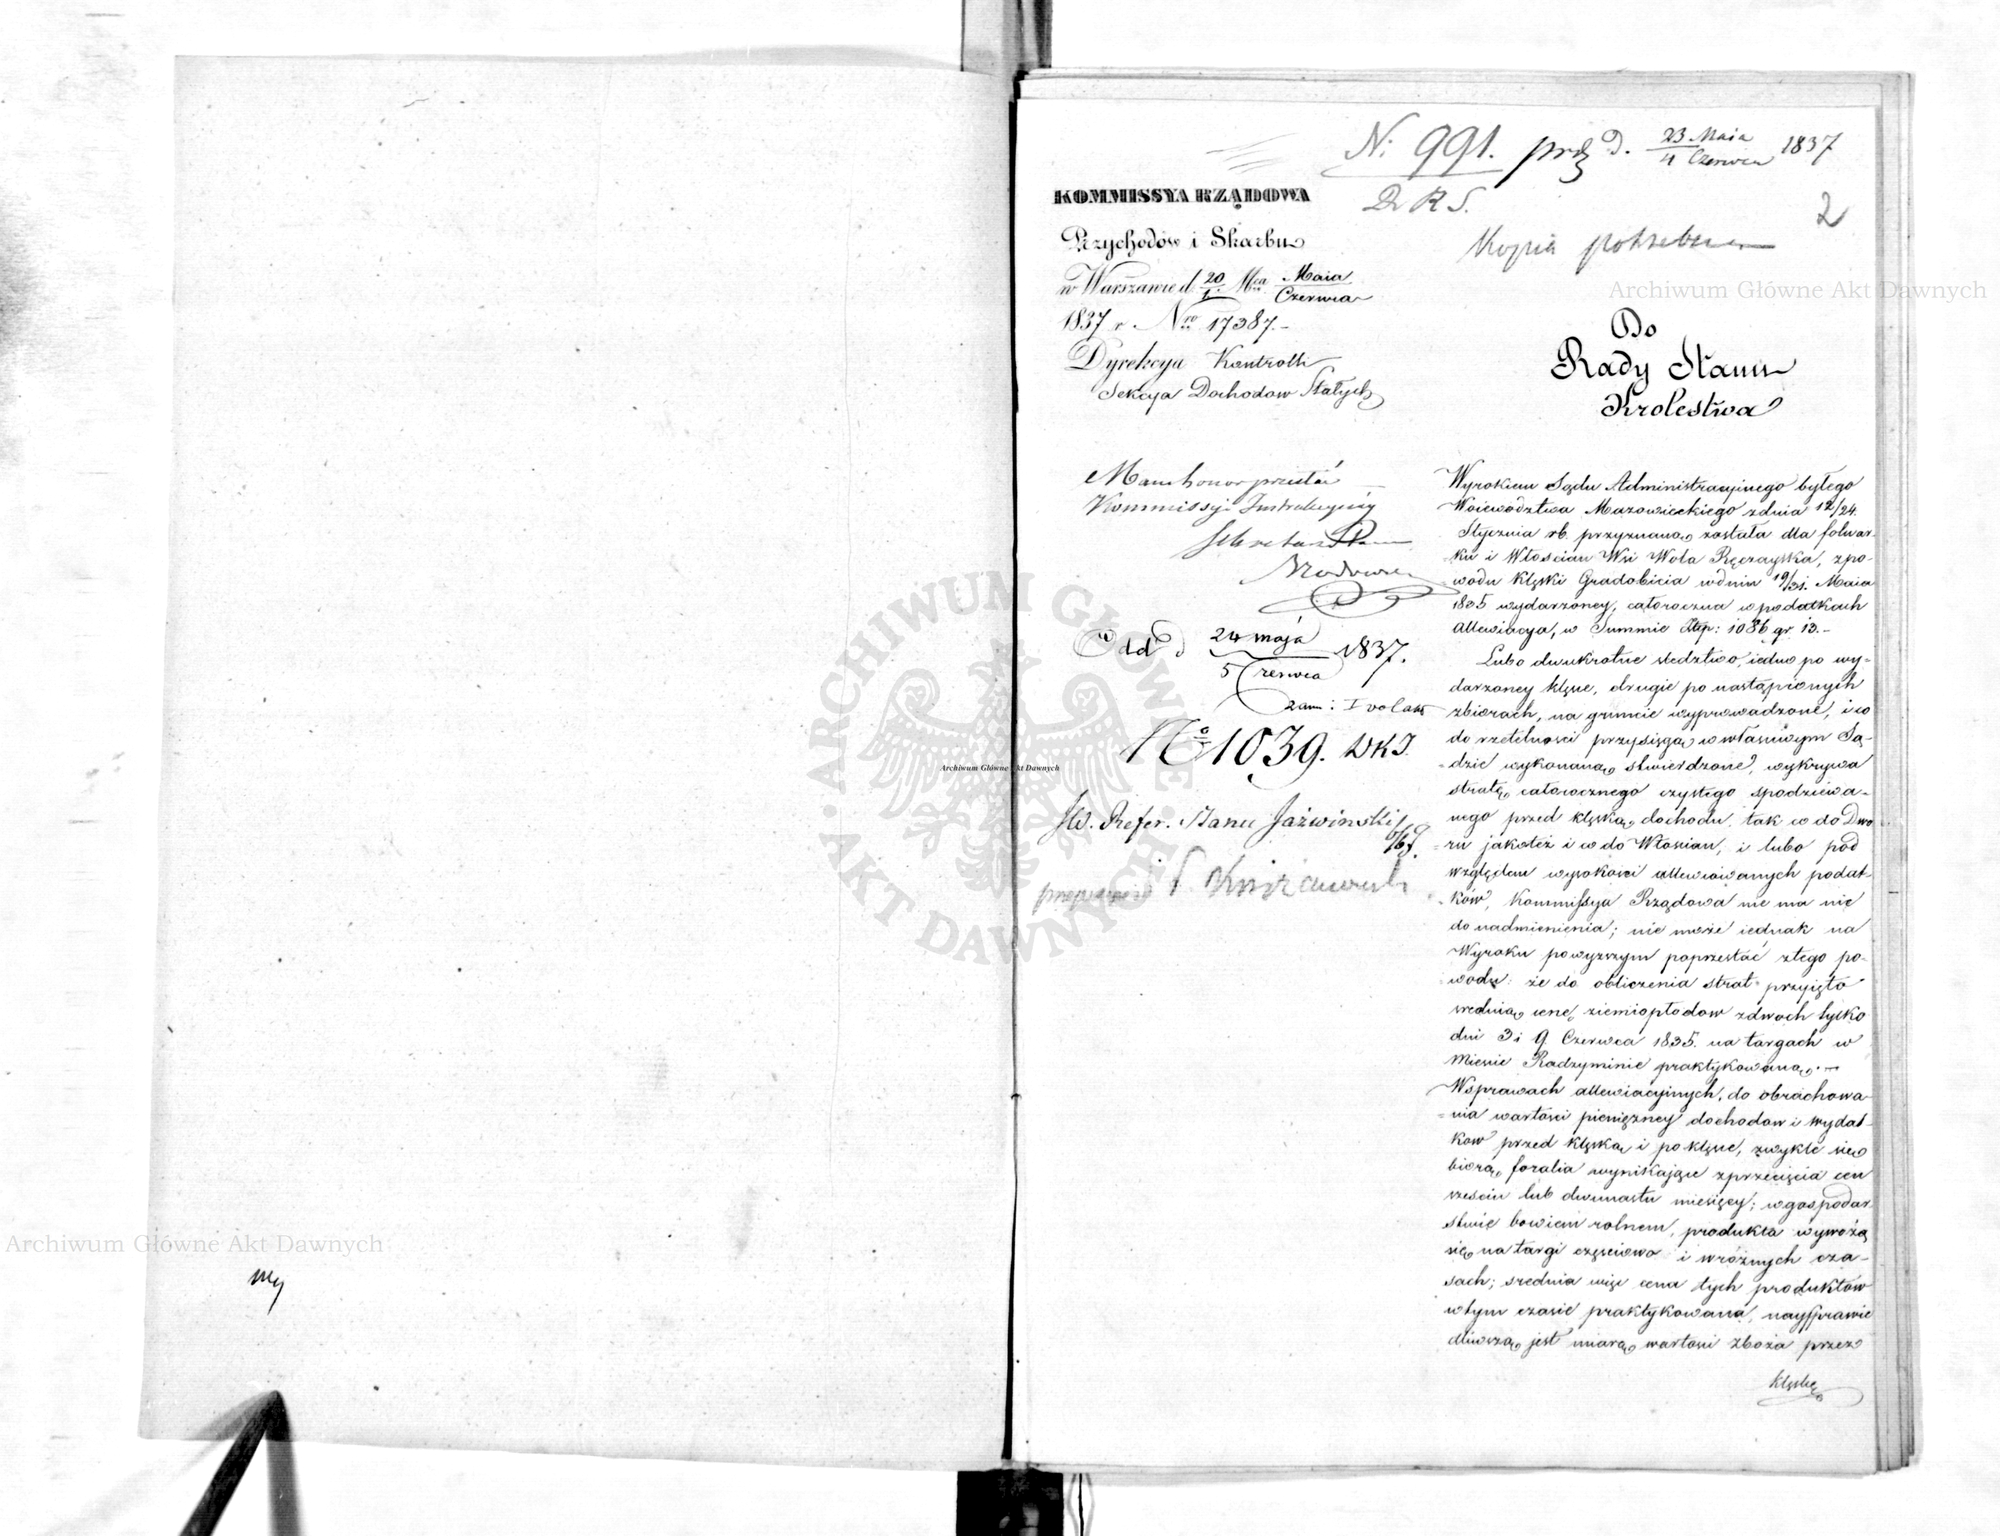 N: 991. prz D. 23 Maia / 4 Czerwca 1837
D R S.
2
Kopia potrzebna
KOMMISSYA RZĄDOWA
Przychodów i Skarbu
w Warszawie d. 20/1. Mca Maia/Czerwca
1837 r. Nro 17387.-
Dyrekcya Kontrolli
Sekcya Dochodow Stałych
Do
Rady Stanu
Krolestwa
Mam honor przesłać
Kommissyi Instrukcyiney
Sekretarz Stanu
Odd d 24 maja / 5 Czerwca 1837.
No 1039. WKI.
JW. Refer. Stanu Jaźwiński
Wyrokiem Sądu Administracyjnego byłego
Woiewództwa Mazowieckiego z dnia 12/24.
Stycznia rb. przyznaną została dla folwar-
ku i Włościan Wsi Wola Ręczayska, z po-
wodu klęski Gradobicia w dniu 19/31. Maia
1835 wydarzoney, całoroczna w podatkach
allewiacya, w Summie Złp: 1086 gr 13.-
Lubo dwukrotne śledztwo, iedno po wy-
darzoney klęsce, drugie po nastąpionych
zbiorach, na gruncie wyprowadzone, i co
do rzetelności przysięgą w właściwym Są-
dzie wykonaną stwierdzone, wykrywa
stratę całorocznego czystego spodziewa-
nego przed klęską dochodu, tak co do Dwo
ru jakoteż i co do Włoscian, i lubo pod
względem wysokości allewiowanych podat-
ków, Kommissya Rządowa nie ma nic
do nadmienienia; nie może iednak na
Wyroku powyższym poprzestać z tego po-
wodu: że do obliczenia strat przyięto
srednią cenę ziemiopłodow z dwoch tylko
dni 3 i 9 Czerwca 1835. na targach w
Miescie Radzyminie praktykowaną. -
W sprawach allewiacyjnych, do obrachowa-
nia wartości pieniężney dochodow i wydat-
kow przed klęską i po klęsce, zwykle się
biorą foralia wynikające z przecięcia cen
sześciu lub dwunastu miesięcy; w gospodar-
stwie bowiem rolnem, produkta wywożą
się na targi częściowo i w różnych cza-
sach; srednia więc cena tych produktów
w tym czasie praktykowana, naysprawie
dliwszą jest miarą wartości zboża przez
klęskę
Archiwum Główne Akt Dawnych
Archiwum Główne Akt Dawnych
Archiwum Główne Akt Dawnych
ARCHIWUM GŁÓWNE AKT DAWNYCH